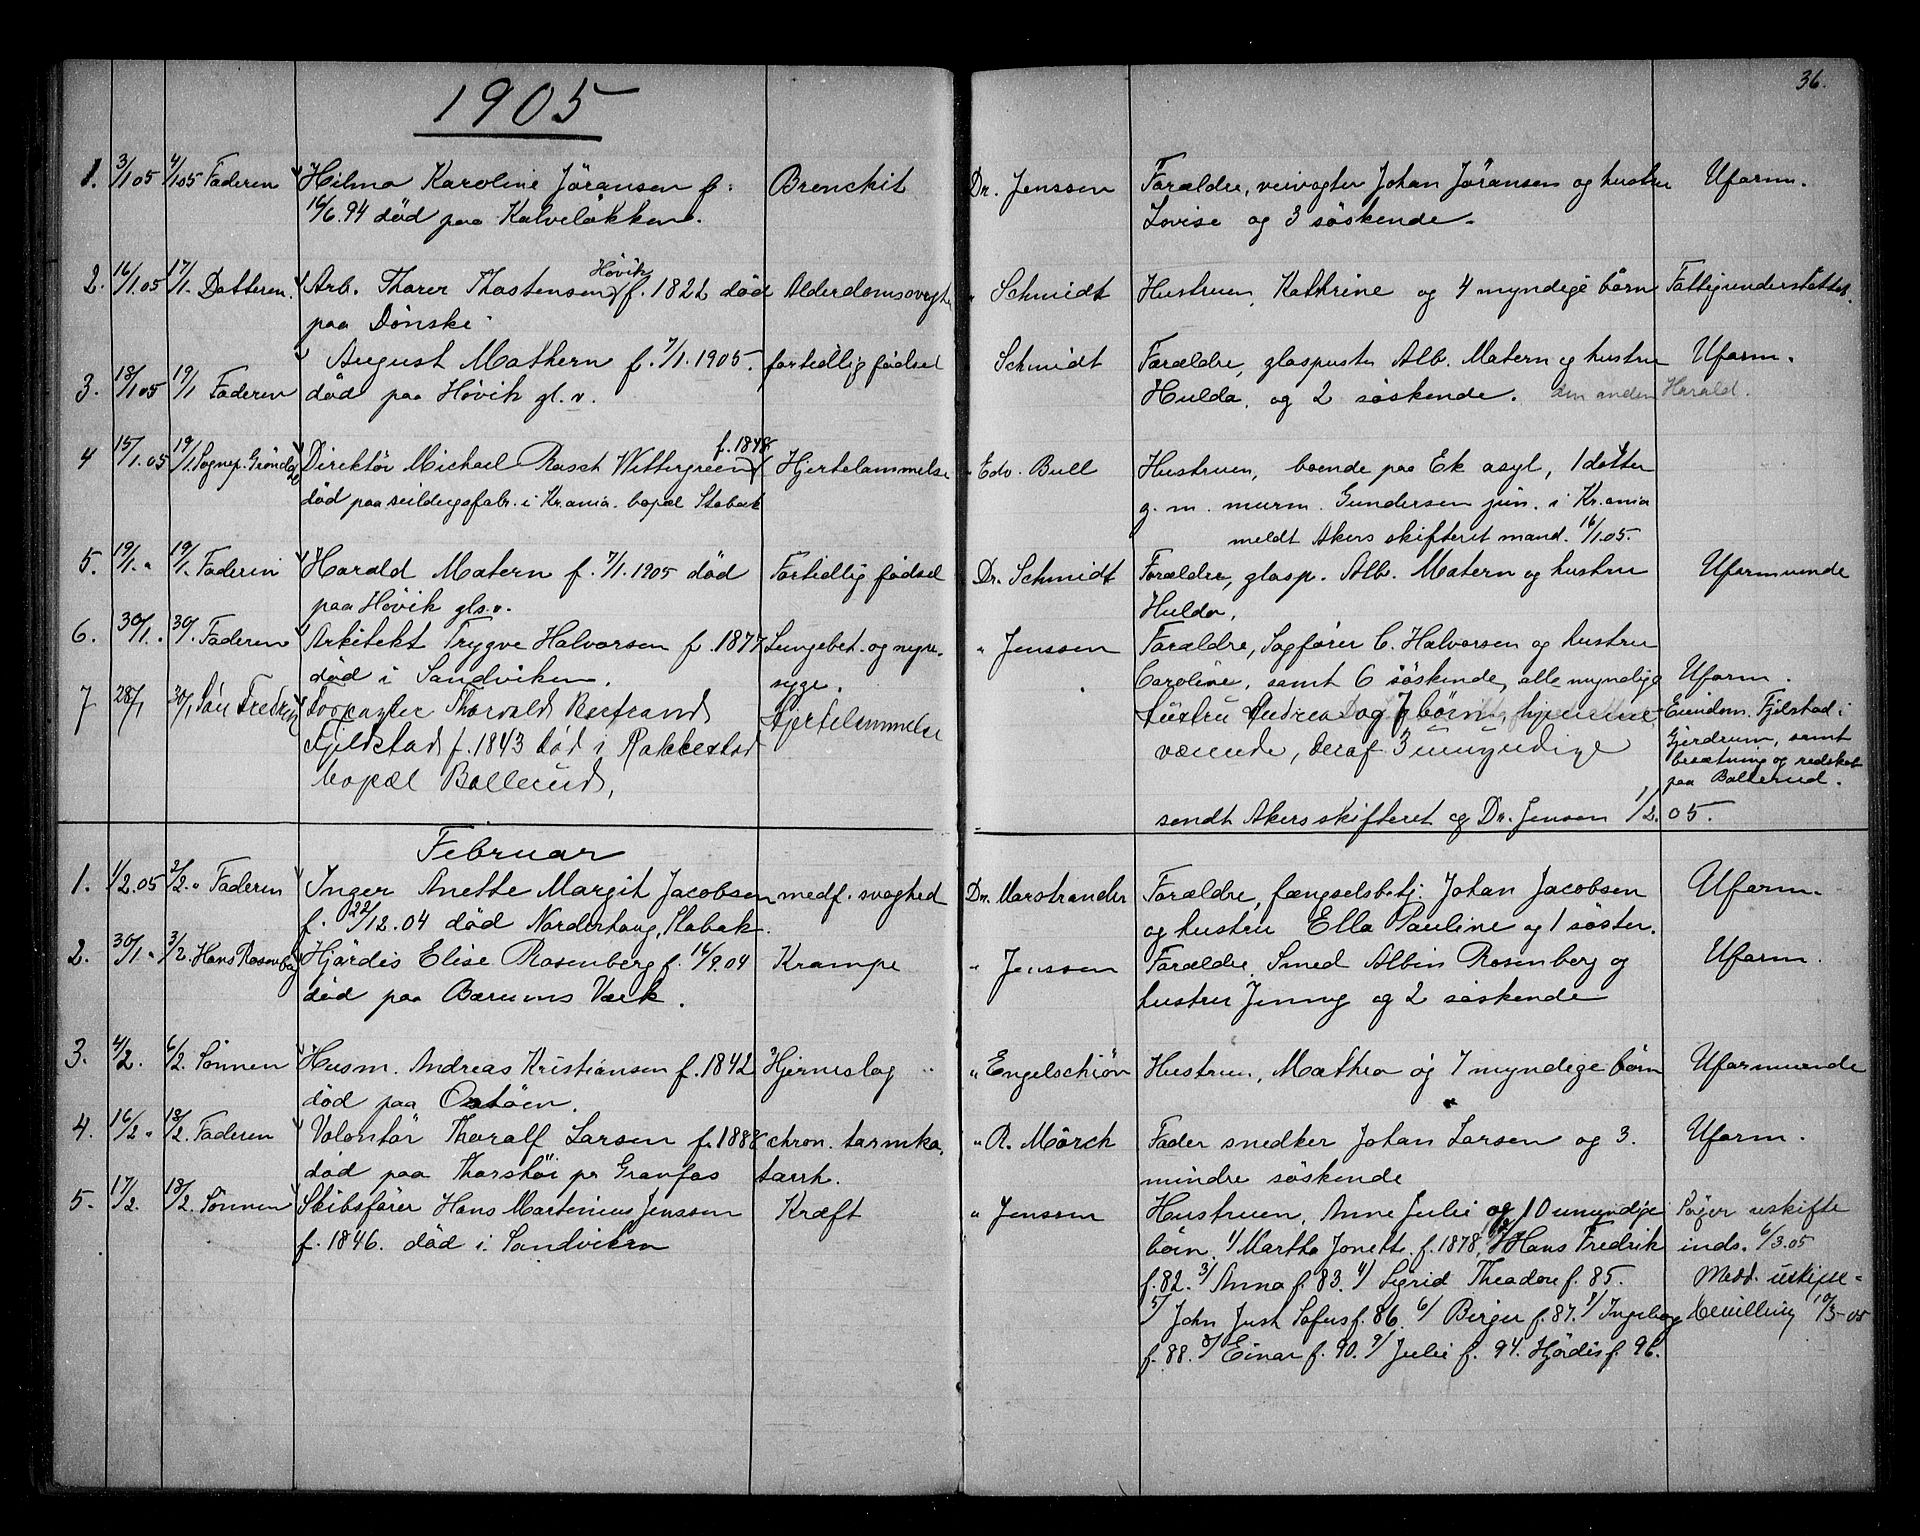 36.
1905
1. 3/1 05 4/1 05 Faderen Hilma Karoline Jöransen f. Bronckit Dr. Jenssen Forældre, veivogter Johan Jöransen og hustru Uform.
16/6.94 död paa Kalveløkken. Lovise og 3 söskende.
2. 16/1.05 17/1. Datteren. Arb. Thorer Thostensen Hövik f. 1822 död Alderdomsvagt " Schmidt Hustruen Kathrine og 4 myndige børn Fattigunderstøttet.
paa Dönski.
3. 18/1 05 19/1 Faderen August Mathern f. 7/1. 1905. fortidlig födsel Schmidt Forældre, glaspuster Alb. Matern og hustru Uform.
död paa Hövik gl. v. Hulda, og 2 söskende. den anden Harald.
f. 1848
4 15/1.05 19/1 Sognep. Gröndal Direktör Michael Rasch Wittergreen Hjertelammelse " Edv. Bull Hustruen, boende paa Ek asyl, 1 datter
död paa seildugsfabr. i Kr.ania. bopæl Stabæk g. m. murm. Gundersen jun. i Kr.ania
meldt Akers skifteret mand. 16/1 05.
5. 19/1. " 19/1. Faderen Harald Matern f. 7/1. 1905 död Fortidlig födsel Dr. Schmidt Forældre, glasp. Alb. Matern og hustru Uformuende
paa Hövik gls. v. Hulda.
6. 30/1. " 30/. Faderen Arkitekt Trygve Halvorsen f. 1877 Lungebet. og nyre- " Jenssen Forældre, Sagförer C. Halvorsen og hustru
död i Sandviken. syge. Caroline, samt 6 söskende, alle myndige Uform.
7 28/1 30/1 Fredrik Thorvald Hjertelammelse Hustru Andrea og 7 børn, hjemme Eiendom. Fjelstad i
Fjeldstad f. 1843 död i Rakkestad værende, deraf 3 umyndige Gjerdrum, samt
bopæl Ballerud, besætning og redskab
paa Balterud.
sendt Akers skifteret og Dr. Jensen 1/2. 05.
Februar
1. 1/2.05 2/2. " Faderen Inger Anette Margit Jacobsen medf. svaghed Dr. Marstrander Forældre, fængselsbetj. Johan Jacobsen Uform.
f. 22/12. 04 död Norderhaug, Stabæk. og hustru Ella Pauline og 1 söster.
2. 30/1 " 3/2. Hans Rosenberg Hjördis Elise Rosenberg f. 16/9. 04 Krampe " Jenssen Forældre, Smed Albin Rosenberg og Uform.
död paa Bærums Værk. hustru Jenny og 2 söskende
3. 4/2. 6/2. Sönnen Husm. Andreas Kristiansen f. 1842 Hjerneslag " " Engelschiön Hustruen, Mathea og 7 myndige børn Uformuende
död paa Ostöen.
4. 16/2 " 18/2. Faderen Volontör Thoralf Larsen f. 1888 chron. tarmka- " R. Mörch Fader snedker Johan Larsen og 3. Uform.
död paa Thorstöi pr Granfos tarrh. mindre söskende
5. 17/2. 18/2. Sönnen Skibsförer Hans Martinius Jenssen Kræft " Jenssen Hustruen, Anne Julie og 10 umyndige Söger uskifte
f. 1846. död i Sandviken börn 1/ Martha Jonette f. 1878, 2/ Hans Fredrik inds. 6/3.05
f. 82. 3/ Anna f. 83. 4/ Sigrid Theodore f. 85. Medd. uskifte-
5/ John Just Sofus f. 86. 6/ Berger f. 87. 7/ Ingeborg bevilling 10/3-05
f. 88. 8/ Einar f. 90. 9/ Julie f. 94. Hjördis f. 96.